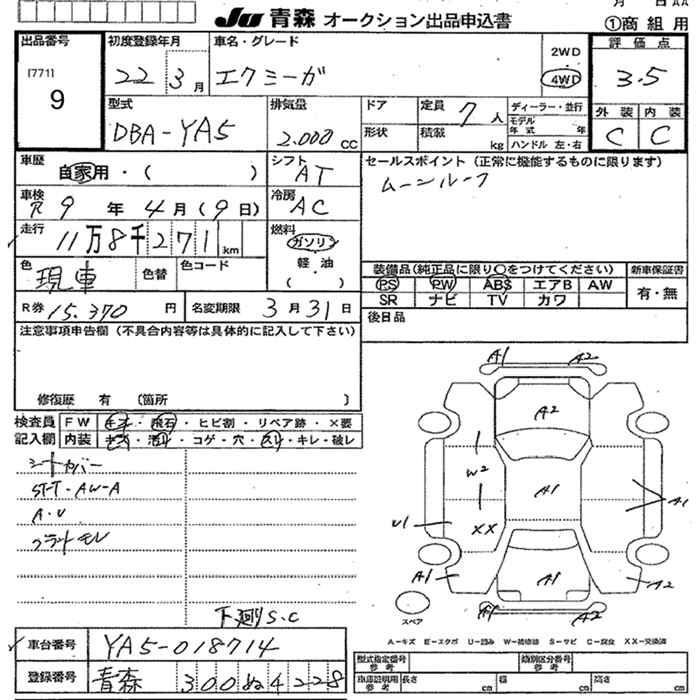 月 日 AA
JU 青森 オークション出品申込書 ①商組用
出品番号 初度登録年月 車名・グレード 2WD 評価点
[771] 22 3月 エクシーガ 4WD 3.5
9
型式 排気量 ドア 定員 7人 ディーラー・並行 外装 内装
DBA-YA5 2.000 CC 形状 積載 kg モデル年式 年 C C
ハンドル 左・右
車歴 自家用・( ) シフト AT セールスポイント (正常に機能するものに限ります)
車検 R9年4月(9日) 冷房 AC ムーンルーフ
走行 11万8千271km 燃料 ガソリン
軽油
( )
色 現車 色替 色コード 装備品(純正品に限り○をつけてください) 新車保証書
PS PW ABS エアB AW 有・無
R券 15.370円 名変期限 3月31日 SR ナビ TV カワ
注意事項申告欄 (不具合内容等は具体的に記入して下さい) 後日品
修復歴 有 (箇所 )
検査員 FW キズ・飛石・ヒビ割・リペア跡・×要
記入欄 内装 コゲ・穴・スリ・キレ・破レ
シートカバー
ST-T・AW-A
A・U
フラットモレ
下廻りS.C
A1 A2
A2
W2
A1 A1
U1 XX
A1 A1 A2
A1 A2
スペア
A-キズ E-エクボ U-凹み W-補修跡 S-サビ C-腐食 XX-交換済
車台番号 YA5-018714
登録番号 青森 300 ぬ 4228
型式指定番号 参考 類別区分番号 参考
車庫証明用 参考 長さ cm 幅 cm 高さ cm